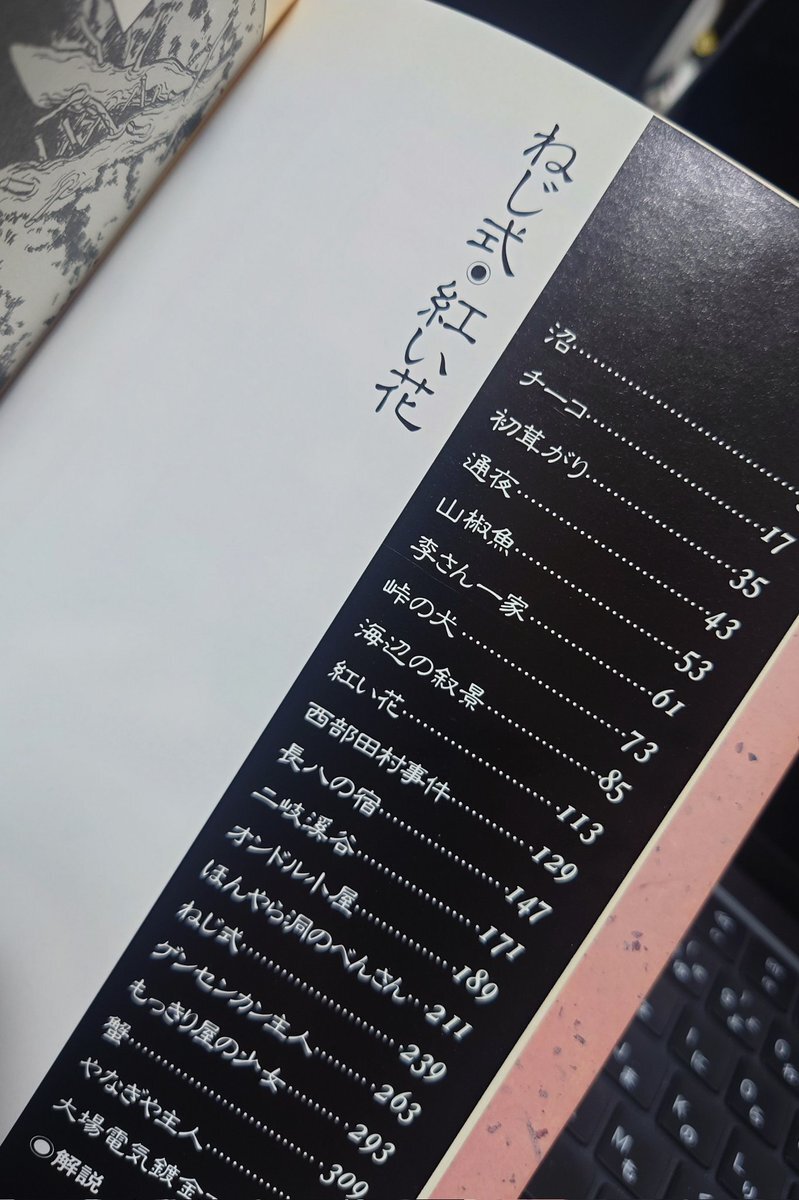 ねじ式◉紅い花
沼
チーコ……17
初茸がり……35
通夜……43
山椒魚……53
李さん一家……61
峠の犬……73
海辺の叙景……85
紅い花……113
西部田村事件……129
長八の宿……147
二岐溪谷……171
オンドル小屋……189
ほんやら洞のべんさん……211
ねじ式……239
ゲンセンカン主人……263
もっきり屋の少女……293
蟹……309
やなぎや主人
大場電気鍍金
◉解説
K
の
M
も